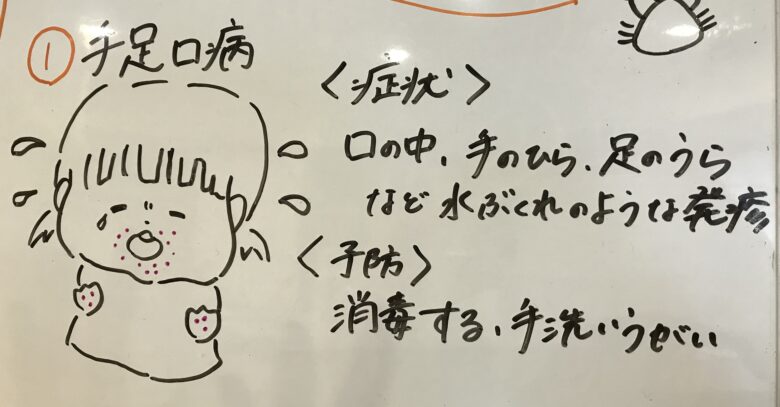 ① 手足口病
〈症状〉
口の中、手のひら、足のうら
など水ぶくれのような発疹
〈予防〉
消毒する、手洗いうがい